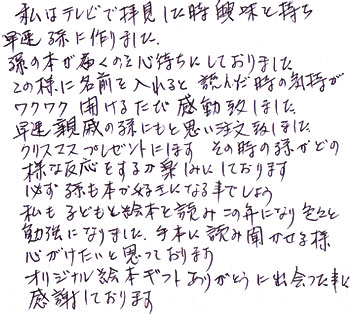 私はテレビで拝見した時興味を持ち
早速孫に作りました。
孫の本が届くのを心待ちにしておりました
この様に名前を入れると読んだ時の気持が
ワクワク開けるたび感動致しました
早速親戚の孫にもと思い注文致しました
クリスマスプレゼントにします その時の孫がどの
様な反応をするか楽しみにしております
必ず孫も本が好きになる事でしょう
私も子どもと絵本を読みこの年になり色々と
勉強になりました。手本に読み聞かせる様
心がけたいと思っております
オリジナル絵本ギフトありがとうに出会った事に
感謝しております